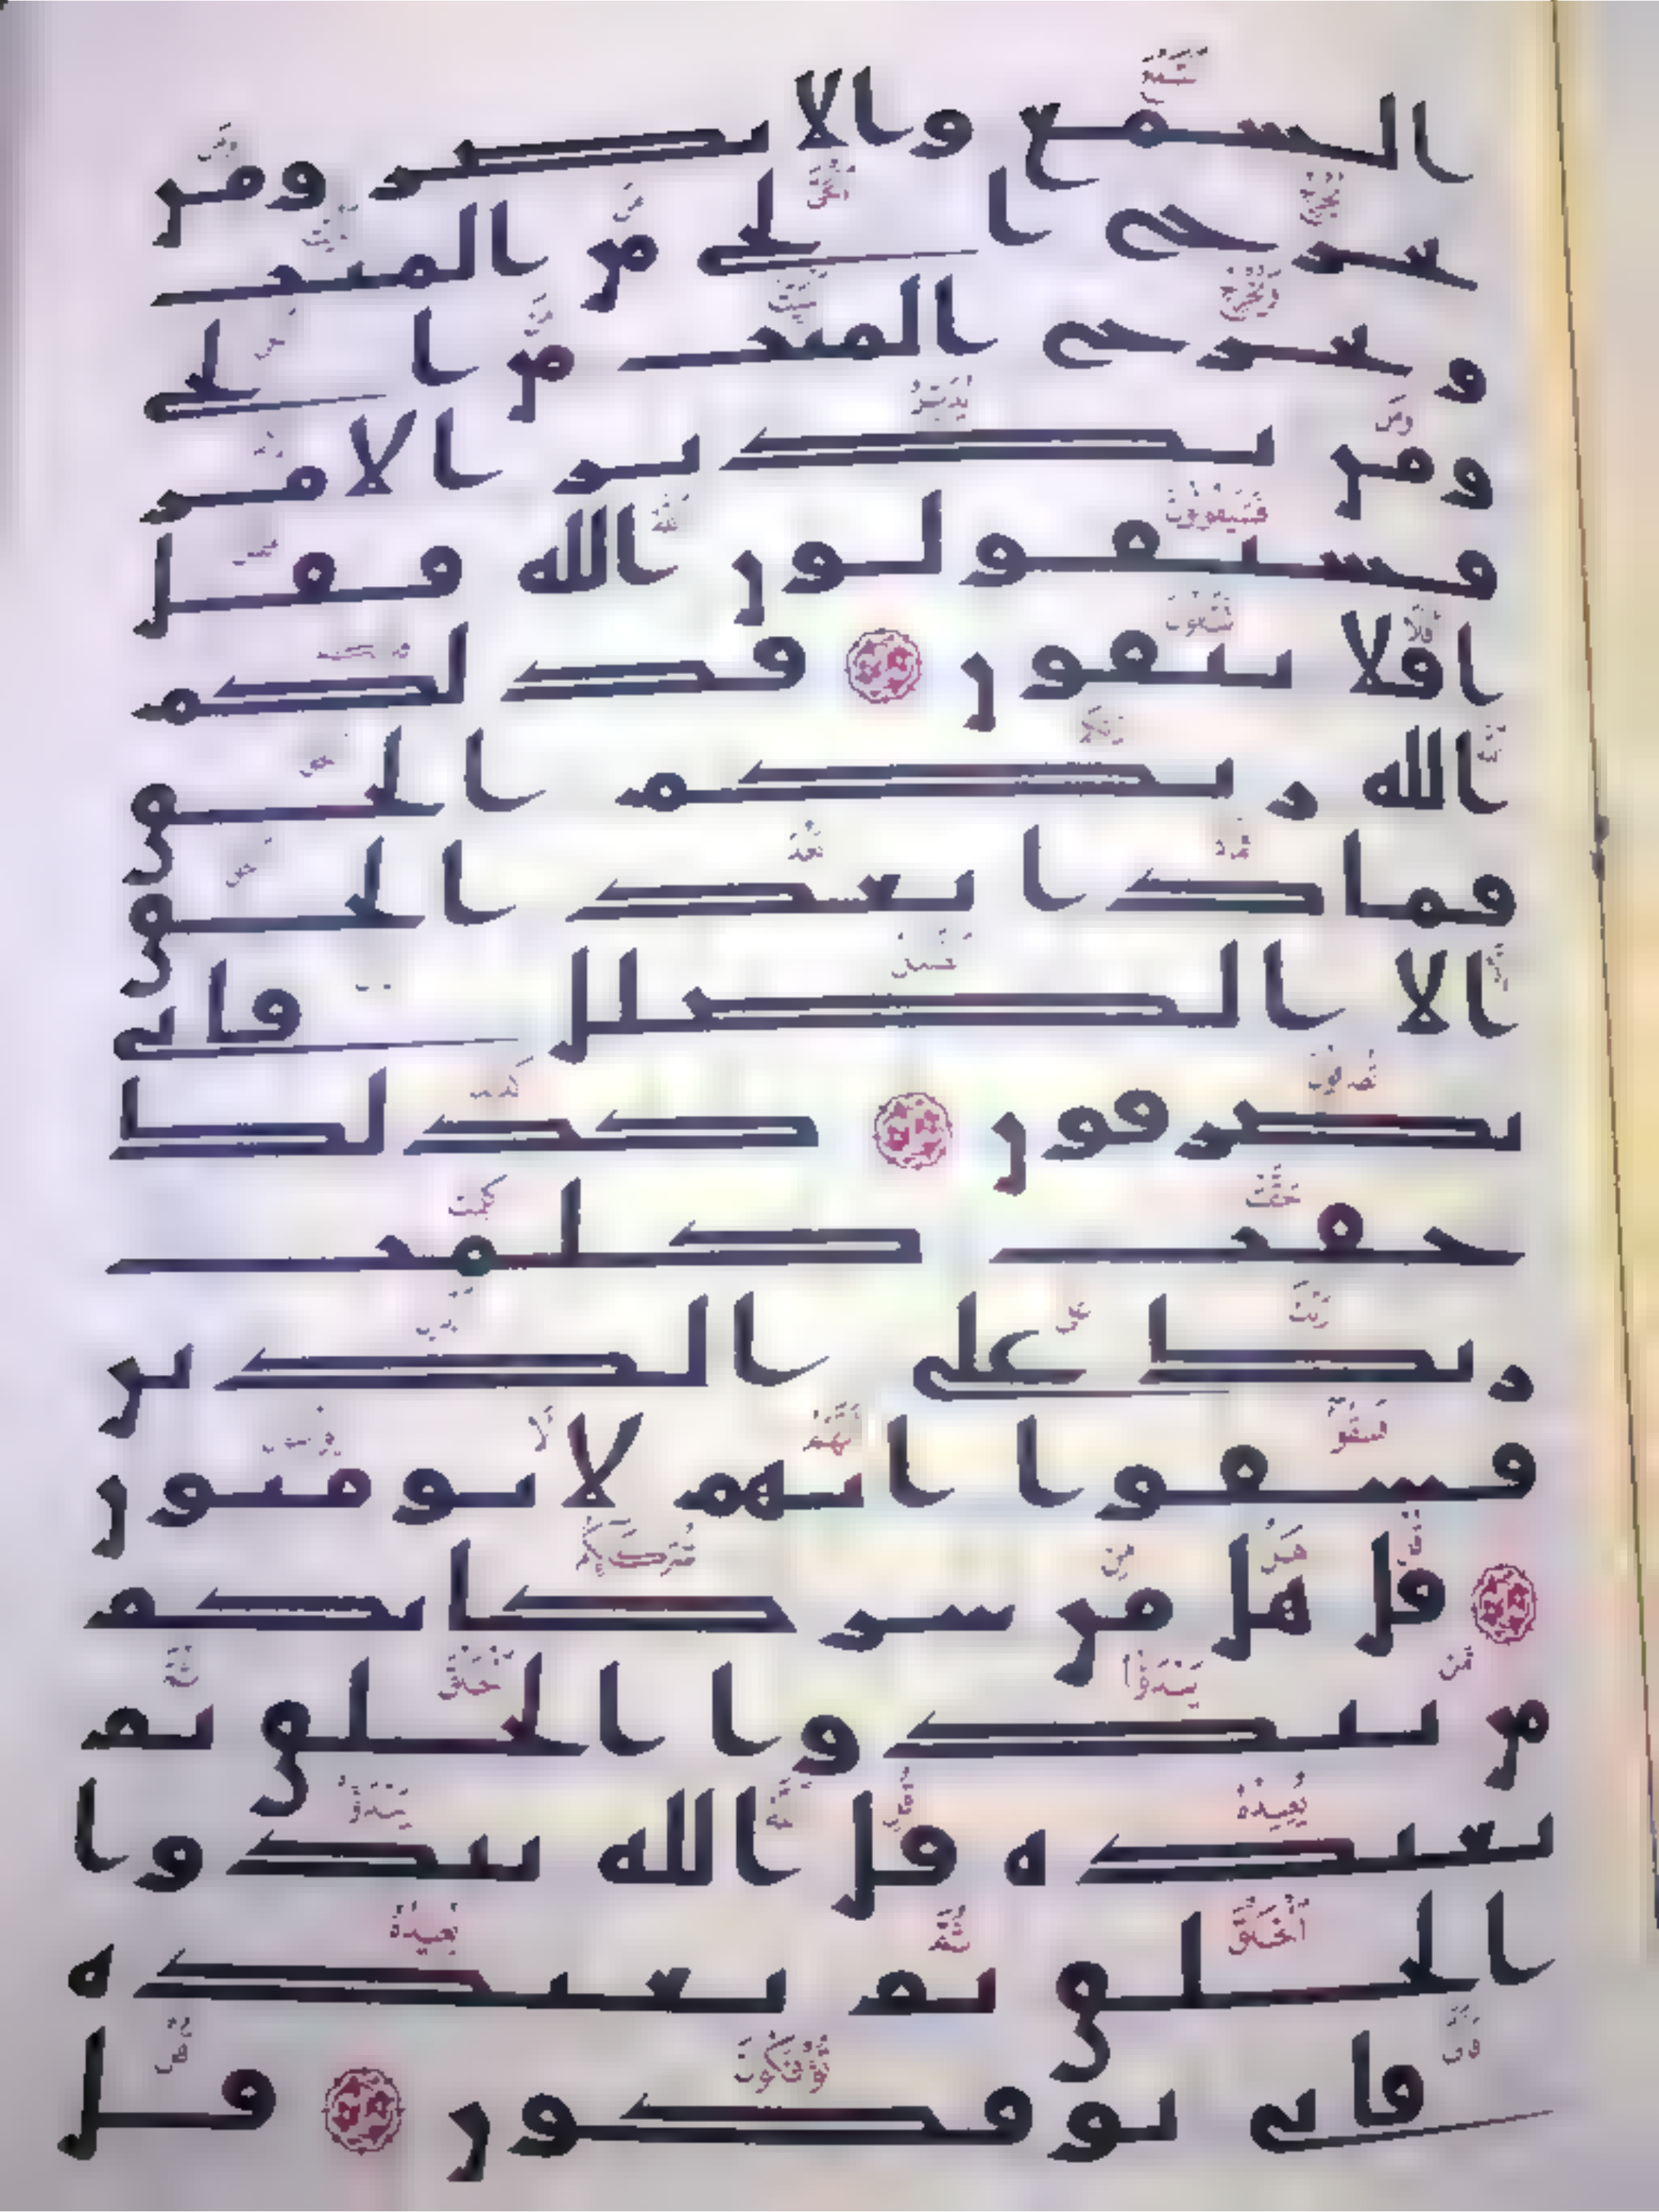 السمع والابصر ومن
يخرج الحي من الميت
ويخرج الميت من الحي
ومن يدبر الامر
فسيقولون الله فقل
افلا تتقون فذلكم
الله ربكم الحق
فماذا بعد الحق
الا الضلل فانى
تصرفون كذلك
حقت كلمت
ربك على الذين
فسقوا انهم لا يومنون
قل هل من شركايكم
من يبدوا الخلق ثم
يعيده قل الله يبدوا
الخلق ثم يعيده
فانى توفكون قل